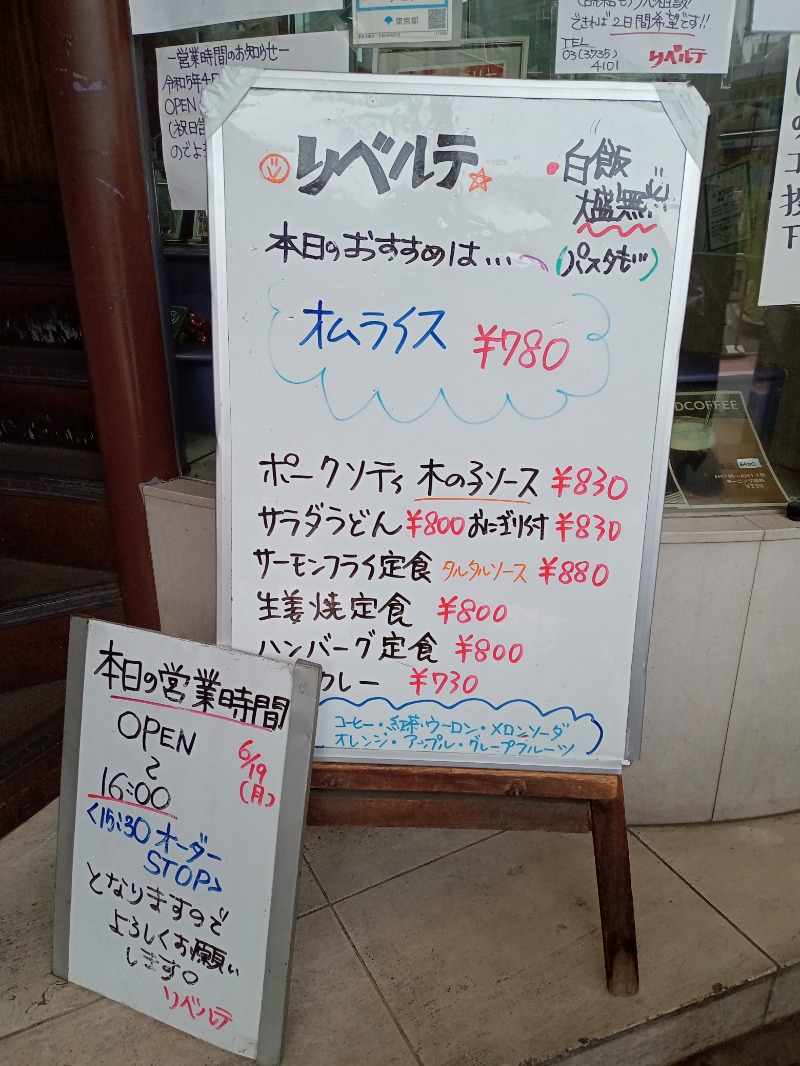 東京都
ー営業時間のお知らせー
令和5年4
OPEN
(祝日
のでよ
できれば2日間希望です!!
TEL
03(3735)
4101
リベルテ
リベルテ
・白飯
大盛無料!!
(パスタも!!)
本日のおすすめは…
オムライス ¥780
ポークソティ 木の子ソース ¥830
サラダうどん ¥800 おにぎり付 ¥830
サーモンフライ定食 タルタルソース ¥880
生姜焼定食 ¥800
ハンバーグ定食 ¥800
カレー ¥730
コーヒー・紅茶・ウーロン・メロンソーダ
オレンジ・アップル・グレープフルーツ
DCOFFEE
本日の営業時間
6/19
(月)
OPEN
〜
16:00
<15:30 オーダー
STOP>
となりますので
よろしくお願い
します。
リベルテ